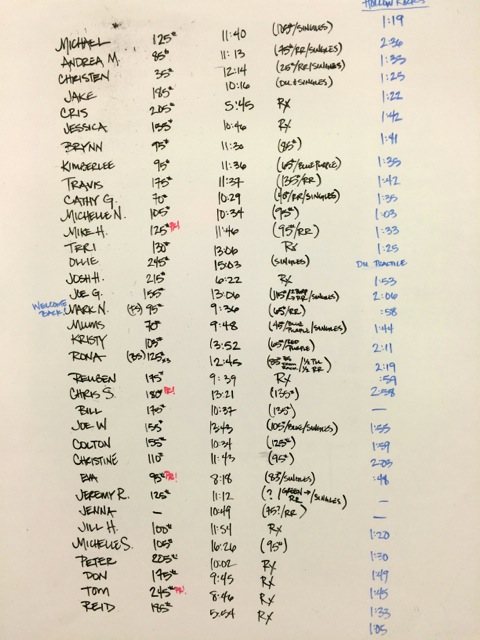 HOLLOW ROCKS
MICHAEL 125# 11:40 (105#/SINGLES) 1:19
ANDREA M. 85# 11:13 (75#/RR/SINGLES) 2:36
CHRISTEN 35# 12:14 (25#/RR/SINGLES) 1:35
JAKE 185# 10:16 (DU+SINGLES) 1:25
CRIS 205# 5:45 RX 1:22
JESSICA 155# 10:46 RX 1:42
BRYNN 95# 11:30 (85#) 1:41
KIMBERLEE 95# 11:36 (65#/BLUE PURPLE) 1:35
TRAVIS 175# 11:37 (135#/RR) 1:42
CATHY G. 70# 10:29 (45#/RR/SINGLES) 1:35
MICHELLE N. 105# 10:34 (95#) 1:03
MIKE H. 125# PR! 11:46 (95#/RR) 1:33
TERI 130# 13:06 RX 1:25
OLLIE 245# 15:03 (SINGLES) DU PRACTICE
JOSH H. 215# 6:22 RX 1:53
JOE G. 155# 13:06 (115#/ RR/SINGLES) 2:06
WELCOME BACK MARK N. 95# 9:36 (65#/RR) :58
MUMS 70# 9:48 (45#/BLUE PURPLE/SINGLES) 1:44
KRISTY 105# 13:52 (65#/RED PURPLE) 2:11
RONA (85) 125#x3 12:45 (85# 2:19
REUBEN 175# 9:39 RX :59
CHRIS S. 180# PR! 13:21 (135#) 2:58
BILL 175# 10:37 (135#) —
JOE W 155# 13:43 (105#/BLUE/SINGLES) 1:55
COLTON 155# 10:34 (125#) 1:59
CHRISTINE 110# 11:43 (95#) 2:03
EVA 95# PR! 8:18 (83#/SINGLES) :48
JEREMY R. 125# 11:12 (?/GREEN → RR/SINGLES) —
JENNA — 10:49 (75?/RR) —
JILL H. 100# 11:54 RX 1:20
MICHELLE S. 105# 16:26 (95#) 1:30
PETER 205# 10:02 RX 1:49
DON 175# 9:45 RX 1:45
TOM 245# PR! 8:46 RX 1:33
REID 185# 5:54 RX 1:05